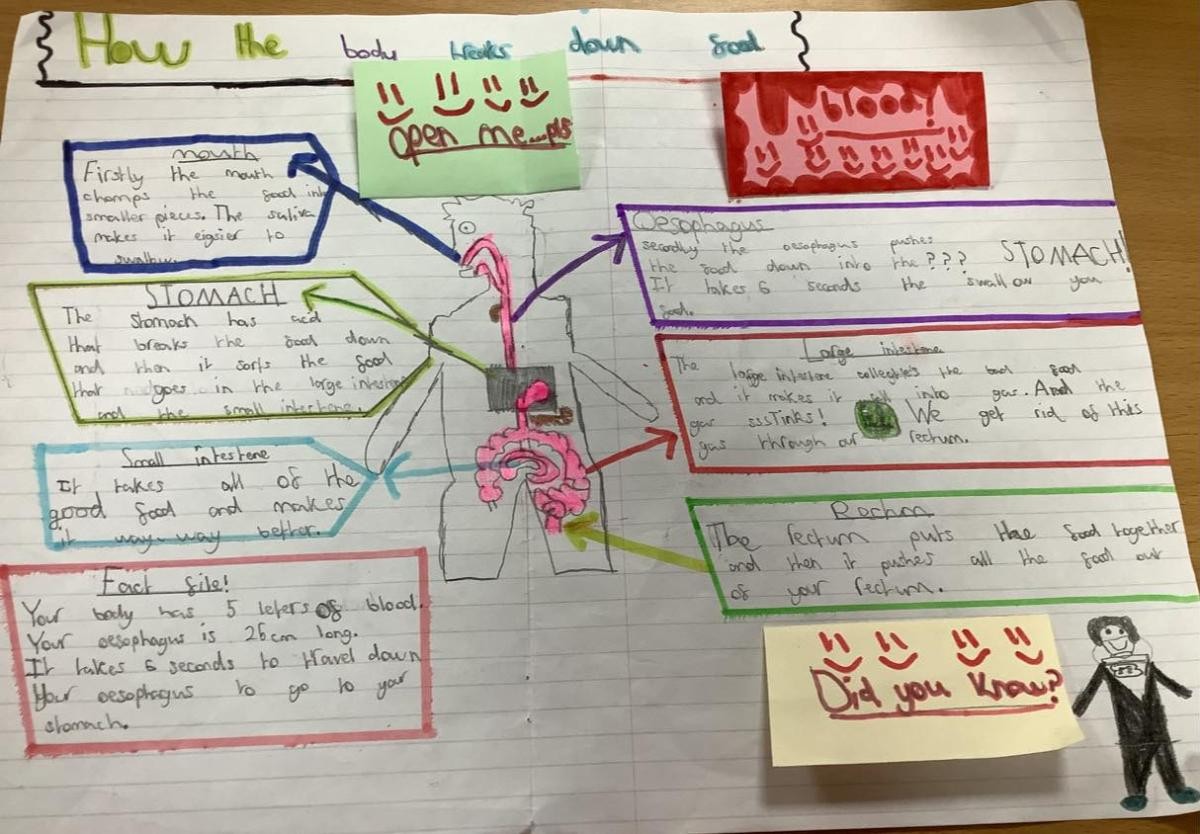 How the body breaks down food
Open me...pls
blood!
mouth
Firstly the mouth
chomps the food into
smaller pieces. The saliva
makes it eigsier to
swallow.
Oesophagus
secondly the oesophagus pushes
the food down into the??? STOMACH!
It takes 6 seconds the swallow you
food.
STOMACH
The stomach has acid
that breaks the food down
and then it sorts the food
that goes in the large intestene
and the small intestene.
Large intestene
The large intestene the bad food
and it makes it all into gas. And the
gas sssTinks! We get rid of this
gas through our rectum.
Small intestene
It takes all of the
good food and makes
it way-way better.
Rectum
The rectum puts the food together
and then it pushes all the food out
of your rectum.
Fact file!
Your body has 5 leters of blood.
Your oesophagus is 26cm long.
It takes 6 seconds to travel down
Your oesophagus to go to your
stomach.
Did you know?